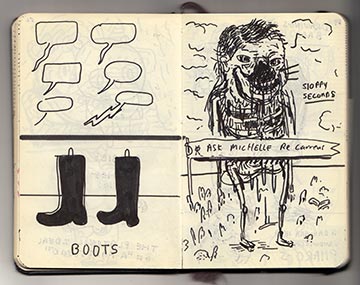 BOOTS
SLOPPY
SECONDS
ASK MICHELLE Re